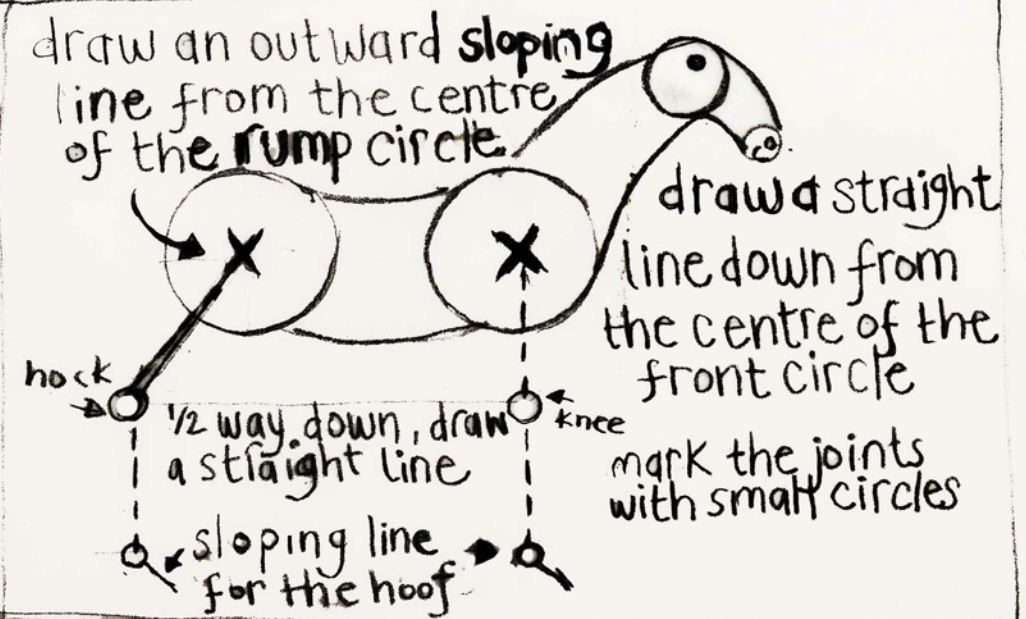 draw an outward sloping
line from the centre
of the rump circle
draw a straight
line down from
the centre of the
front circle
hock
1/2 way down, draw
a straight line
knee
mark the joints
with small circles
sloping line
for the hoof